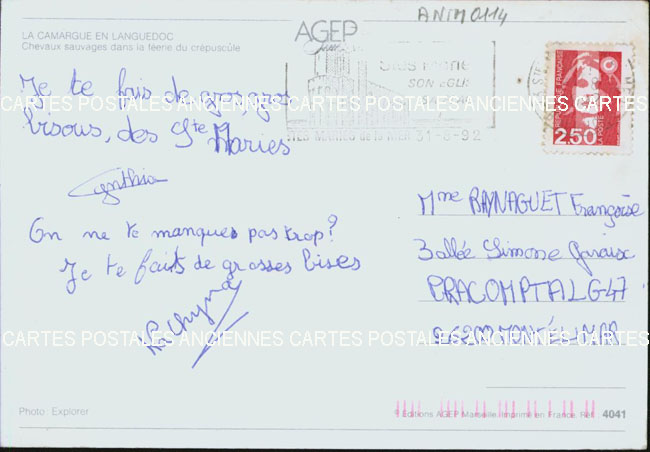 ANIM0114
LA CAMARGUE EN LANGUEDOC
Chevaux sauvages dans la féerie du crépuscule
AGEP
Stes Marie
SON EGLI
DE LA MER 31-8-92
REPUBLIQUE FRANÇAISE
2,50
Je te fais de gros, gros
bisous, des Ste Maries
Cynthia
On ne te manques pas trop?
Je te faits de grosses bises
Mme RAYNAGUET Françoise
3 allée Simone
26200 MONTÉLIMAR
CARTES POSTALES ANCIENNES CARTES POSTALES ANCIENNES CARTES POSTALES
CARTES POSTALES ANCIENNES CARTES POSTALES ANCIENNES CARTES POSTALES
Photo: Explorer
© Editions AGEP Marseille. Imprimé en France. Réf. 4041